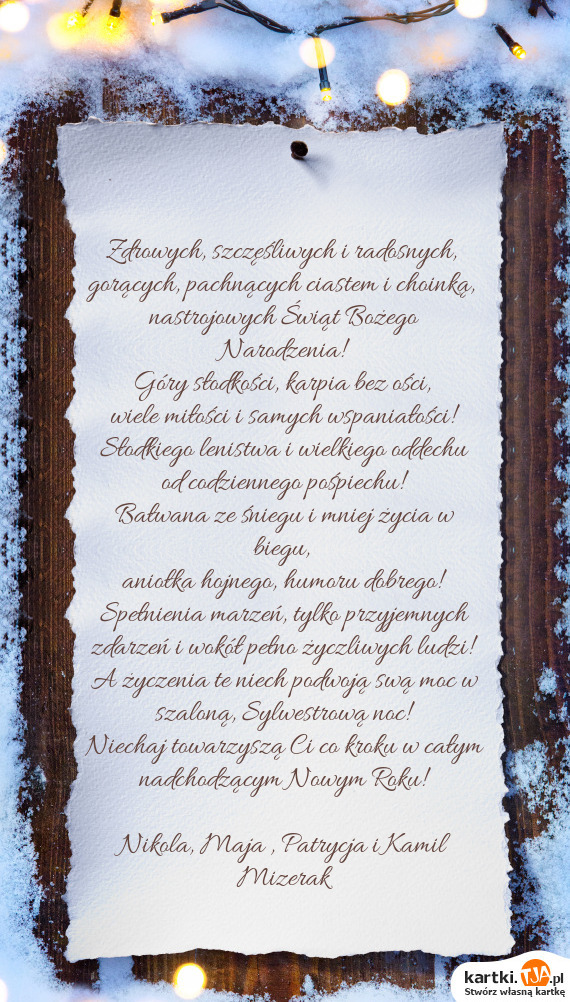 Zdrowych, szczęśliwych i radosnych,
gorących, pachnących ciastem i choinką,
nastrojowych Świąt Bożego
Narodzenia!
Góry słodkości, karpia bez ości,
wiele miłości i samych wspaniałości!
Słodkiego lenistwa i wielkiego oddechu
od codziennego pośpiechu!
Bałwana ze śniegu i mniej życia w
biegu,
aniołka hojnego, humoru dobrego!
Spełnienia marzeń, tylko przyjemnych
zdarzeń i wokół pełno życzliwych ludzi!
A życzenia te niech podwoją swą moc w
szaloną, Sylwestrową noc!
Niechaj towarzyszą Ci co kroku w całym
nadchodzącym Nowym Roku!
Nikola, Maja , Patrycja i Kamil
Mizerak
kartki.TJA.pl
Stwórz własną kartkę